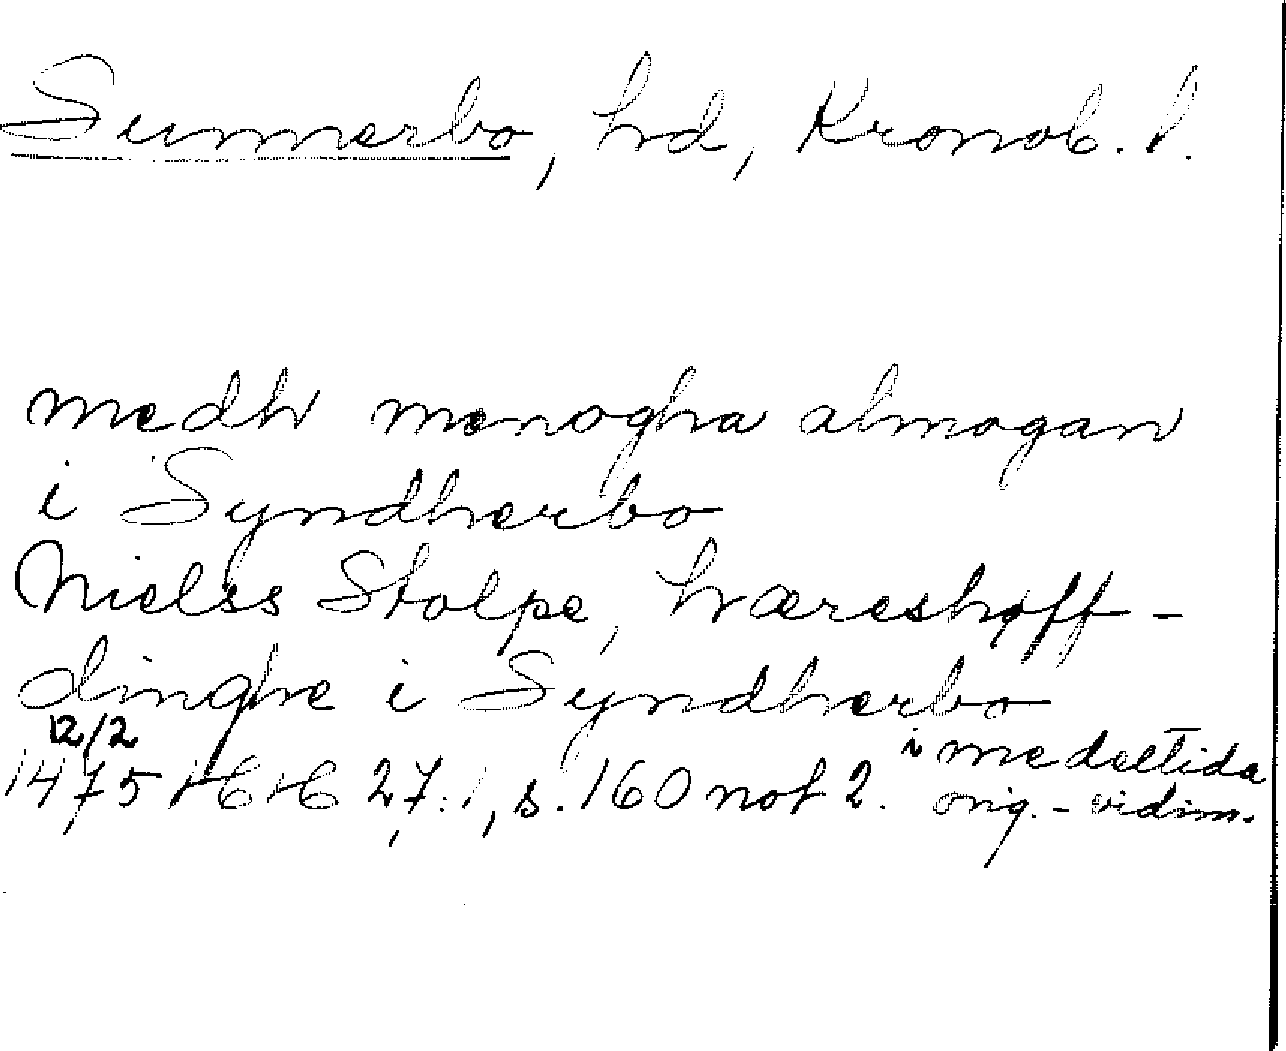 Sunnerbo, hd, Kronob. l.
medh menogha almogan
i Syndherbo
Nielss Stolpe, hæreshøff-
dinghe i Syndherbo
12/2
1475 HH 27:1, s. 160 not 2. i medeltida
orig.-vidim.